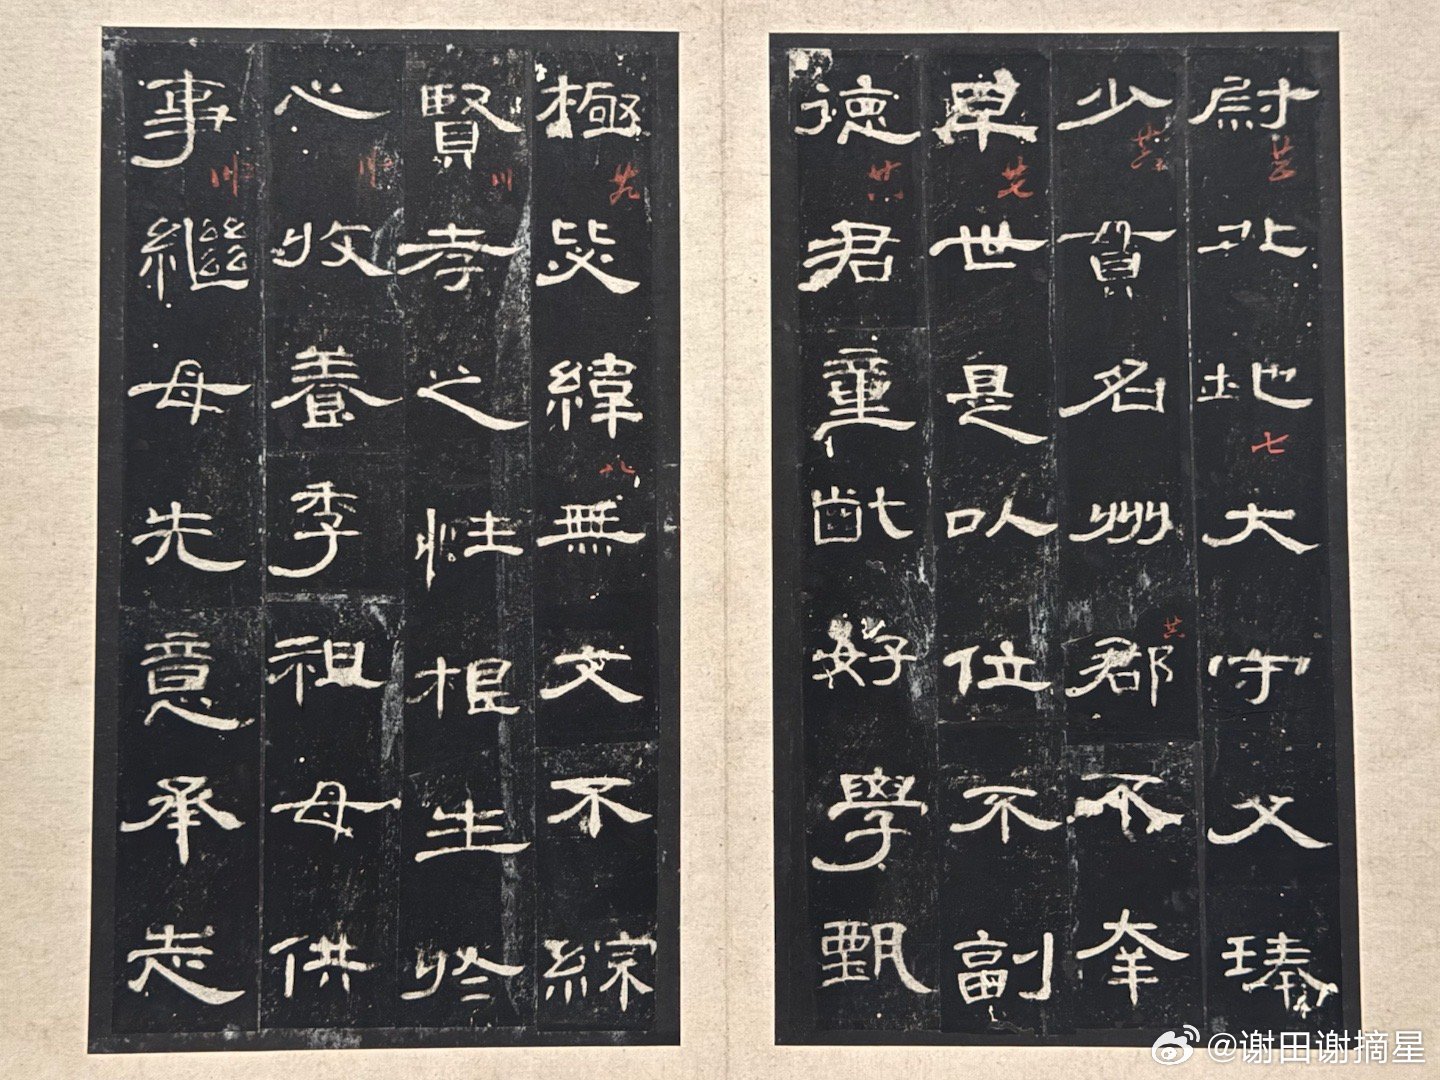 尉北地大守父琫
少貫名州郡不幸
早世是以位不副
德君童齔好學甄
極毖緯無文不綜
賢孝之性根生於
心收養季祖母供
事繼母先意承志
七
廿七
廿八
八
@谢田谢摘星